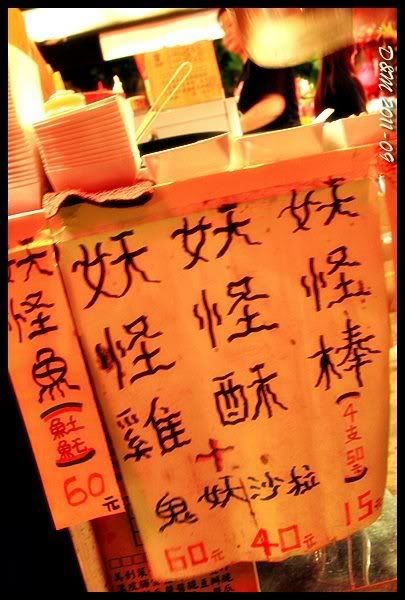 妖怪棒
(4支50元)
15元
妖怪酥
40元
妖怪雞
60元
+
鬼妖沙拉
妖怪魚
60元
D&M 2011-09